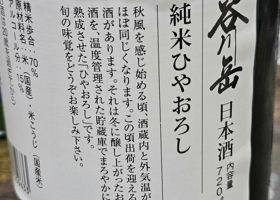 谷川岳
日本酒
内容量
720
純米ひやおろし
秋風を感じ始める頃、酒蔵内と外気温が
ほぼ同じくなります。この頃出荷を迎える
酒があります。それは冬に醸し上がったお
酒を、温度管理された貯蔵庫でまろやかに
熟成させた"ひやおろし"です。
旬の味覚をどうぞお楽しみ下さい。
精米歩合:70%
原材料名:米(国産)・米こうじ(国産米)
アルコール分:15%